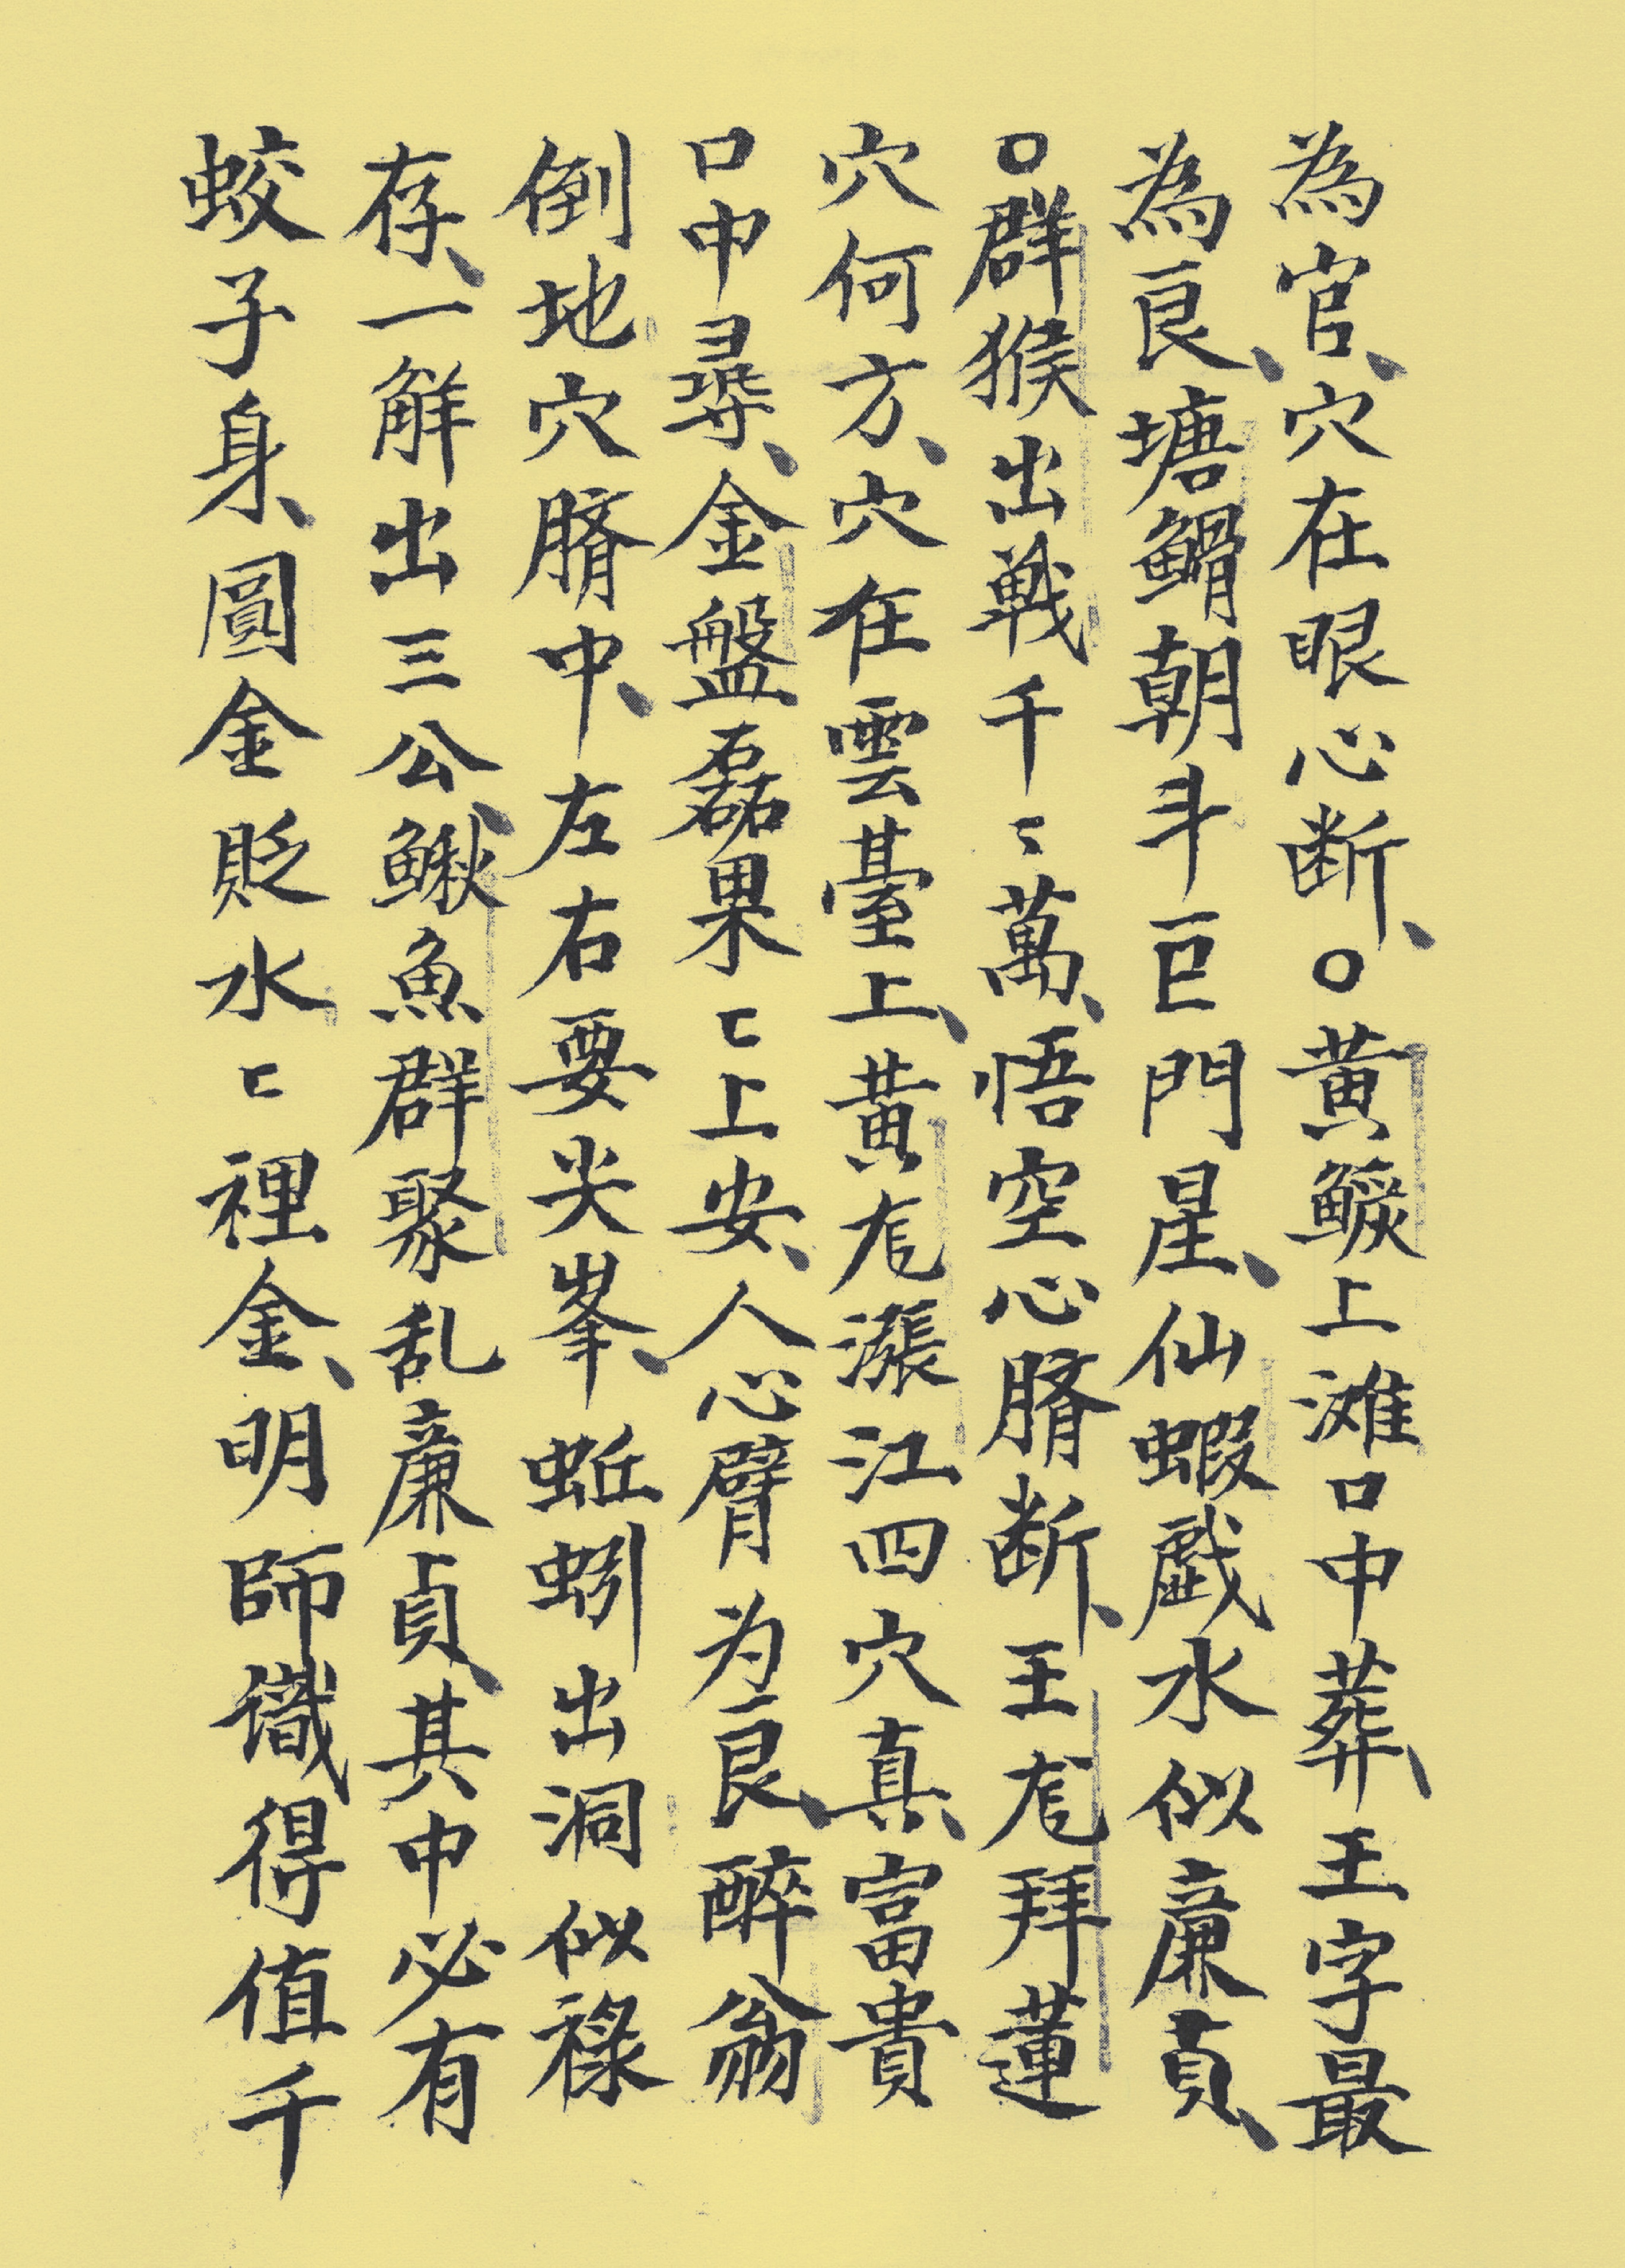 為官、穴在眼心断、○黄鱖上滩口中葬、王字最
為良、塘鰯朝斗巨門星、仙蝦戯水似廉貞、
○群猴出戦千〻萬、悟空心臍断、王尨拜蓮
穴何方、穴在雲臺上、黄尨漲江四穴真、富貴
口中尋、金盤磊果〻上安、人心臂为良、醉翁
倒地穴臍中、左右要尖峯、蚯蚓出洞似禄
存、一解出三公、鳅魚群聚乱廉貞、其中必有
蛟子身、圓金貶水〻裡金、明師識得值千